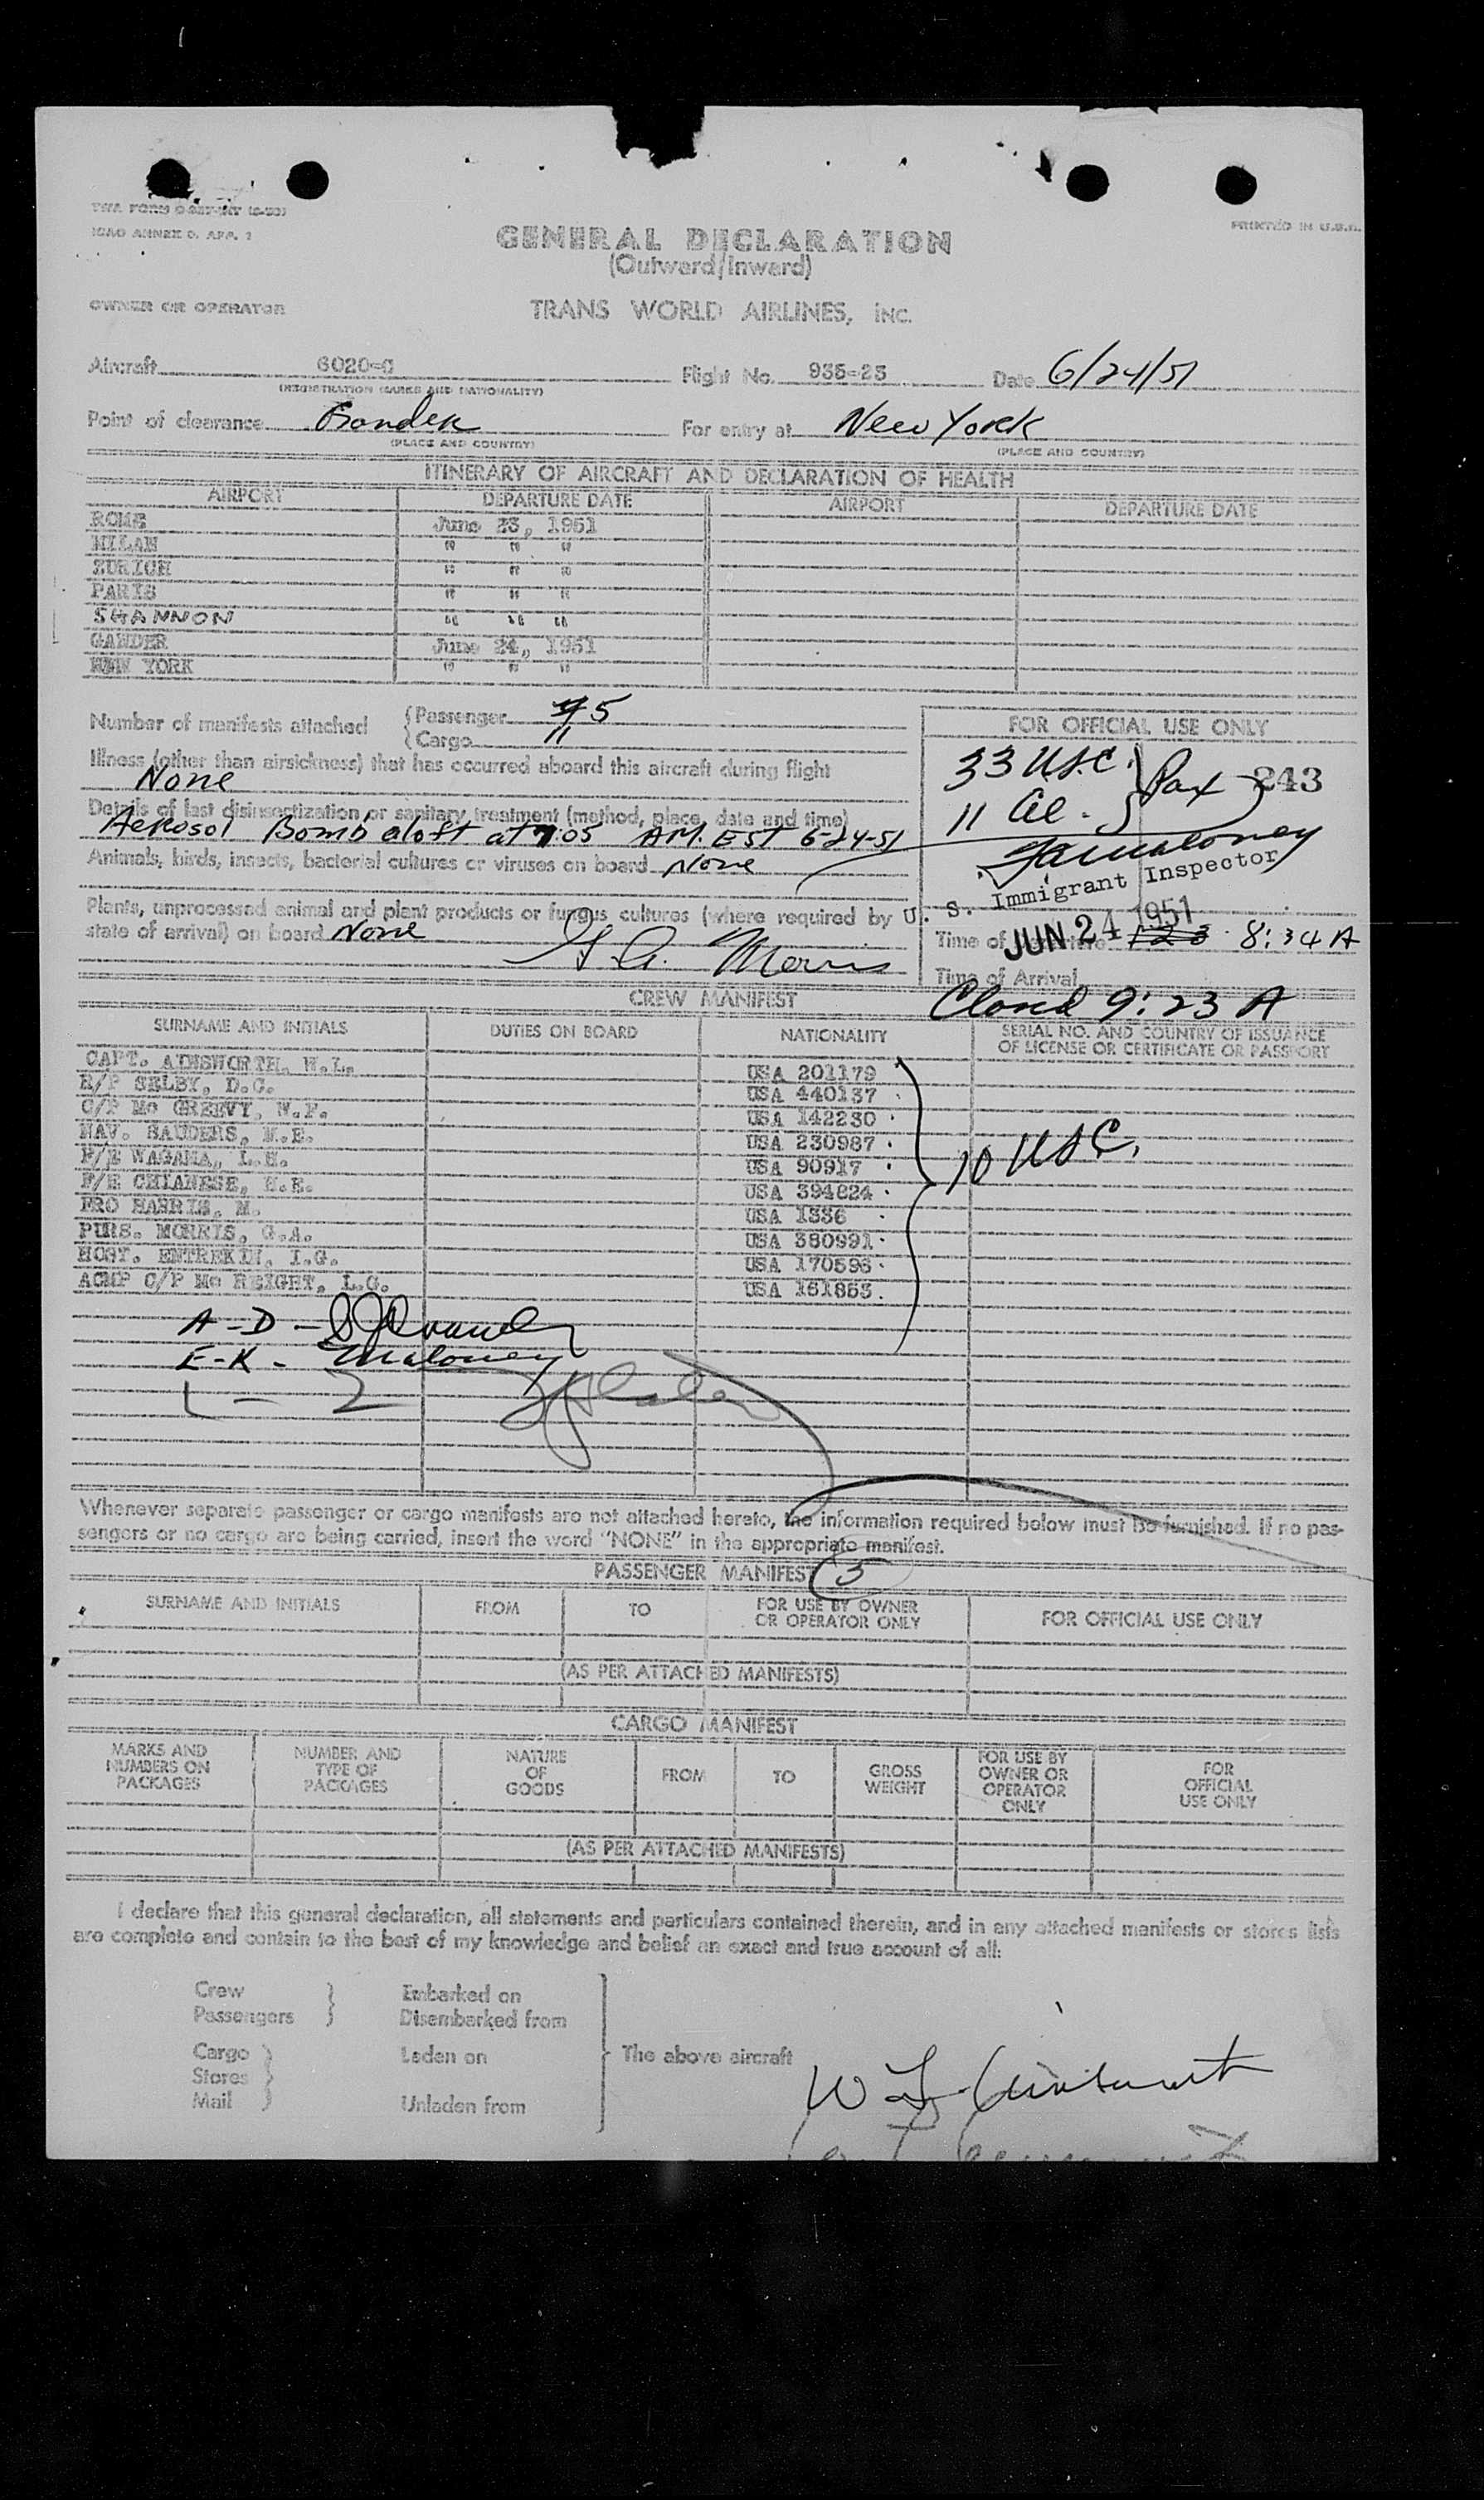 ICAO ANNEX 9, APP. 1
PRINTED IN U.S.A.
GENERAL DECLARATION
(Outward/Inward)
OWNER OR OPERATOR TRANS WORLD AIRLINES, INC.
Aircraft 6020-C Flight No. 935-23 Date 6/24/51
(REGISTRATION MARKS AND NATIONALITY)
Point of clearance Gander For entry at New York
(PLACE AND COUNTRY) (PLACE AND COUNTRY)
ITINERARY OF AIRCRAFT AND DECLARATION OF HEALTH
AIRPORT DEPARTURE DATE AIRPORT DEPARTURE DATE
ROME June 23, 1951
MILAN " " "
ZURICH " " "
PARIS " " "
SHANNON " " "
GANDER June 24, 1951
NEW YORK " " "
Number of manifests attached (Passenger 5
(Cargo 11
FOR OFFICIAL USE ONLY
33 USC. Pax 243
11 Al.
Illness (other than airsickness) that has occurred aboard this aircraft during flight
None
Details of last disinsectization or sanitary treatment (method, place, date and time)
Aerosol Bomb aloft at 7:05 AM. EST 6-24-51
Animals, birds, insects, bacterial cultures or viruses on board None
U. S. Immigrant Inspector
Plants, unprocessed animal and plant products or fungus cultures (where required by
state of arrival) on board None
G.A. Morris
JUN 24 1951
Time of 8:34 A
Time of Arrival
Closed 9:23 A
CREW MANIFEST
SURNAME AND INITIALS DUTIES ON BOARD NATIONALITY SERIAL NO. AND COUNTRY OF ISSUANCE
OF LICENSE OR CERTIFICATE OR PASSPORT
CAPT. AINSWORTH, W.L. USA 201179
R/P SELBY, D.C. USA 440137
C/P Mc GREEVY, W.F. USA 142230
NAV. SAUDERS, M.E. USA 230987
F/E WAGAMA, L.H. USA 90917
F/E CHIANESE, E.E. USA 394824
PRO HARRIS, M. USA 1336
PURS. MORRIS, G.A. USA 380991
HOST. ENTREKIN, I.G. USA 170596
ACMP C/P Mc HEIGHT, L.G. USA 151853
10 USC.
A-D -
E-K - Maloney
L - Z
Whenever separate passenger or cargo manifests are not attached hereto, the information required below must be furnished. If no pas-
sengers or no cargo are being carried, insert the word "NONE" in the appropriate manifest.
PASSENGER MANIFEST 5
SURNAME AND INITIALS FROM TO FOR USE BY OWNER
OR OPERATOR ONLY FOR OFFICIAL USE ONLY
(AS PER ATTACHED MANIFESTS)
CARGO MANIFEST
MARKS AND
NUMBERS ON
PACKAGES
NUMBER AND
TYPE OF
PACKAGES
NATURE
OF
GOODS
FROM
TO
GROSS
WEIGHT
FOR USE BY
OWNER OR
OPERATOR
ONLY
FOR
OFFICIAL
USE ONLY
(AS PER ATTACHED MANIFESTS)
I declare that this general declaration, all statements and particulars contained therein, and in any attached manifests or stores lists
are complete and contain to the best of my knowledge and belief an exact and true account of all:
Crew Embarked on
Passengers Disembarked from
Cargo Laden on The above aircraft
Stores
Mail Unladen from
W L Ainsworth